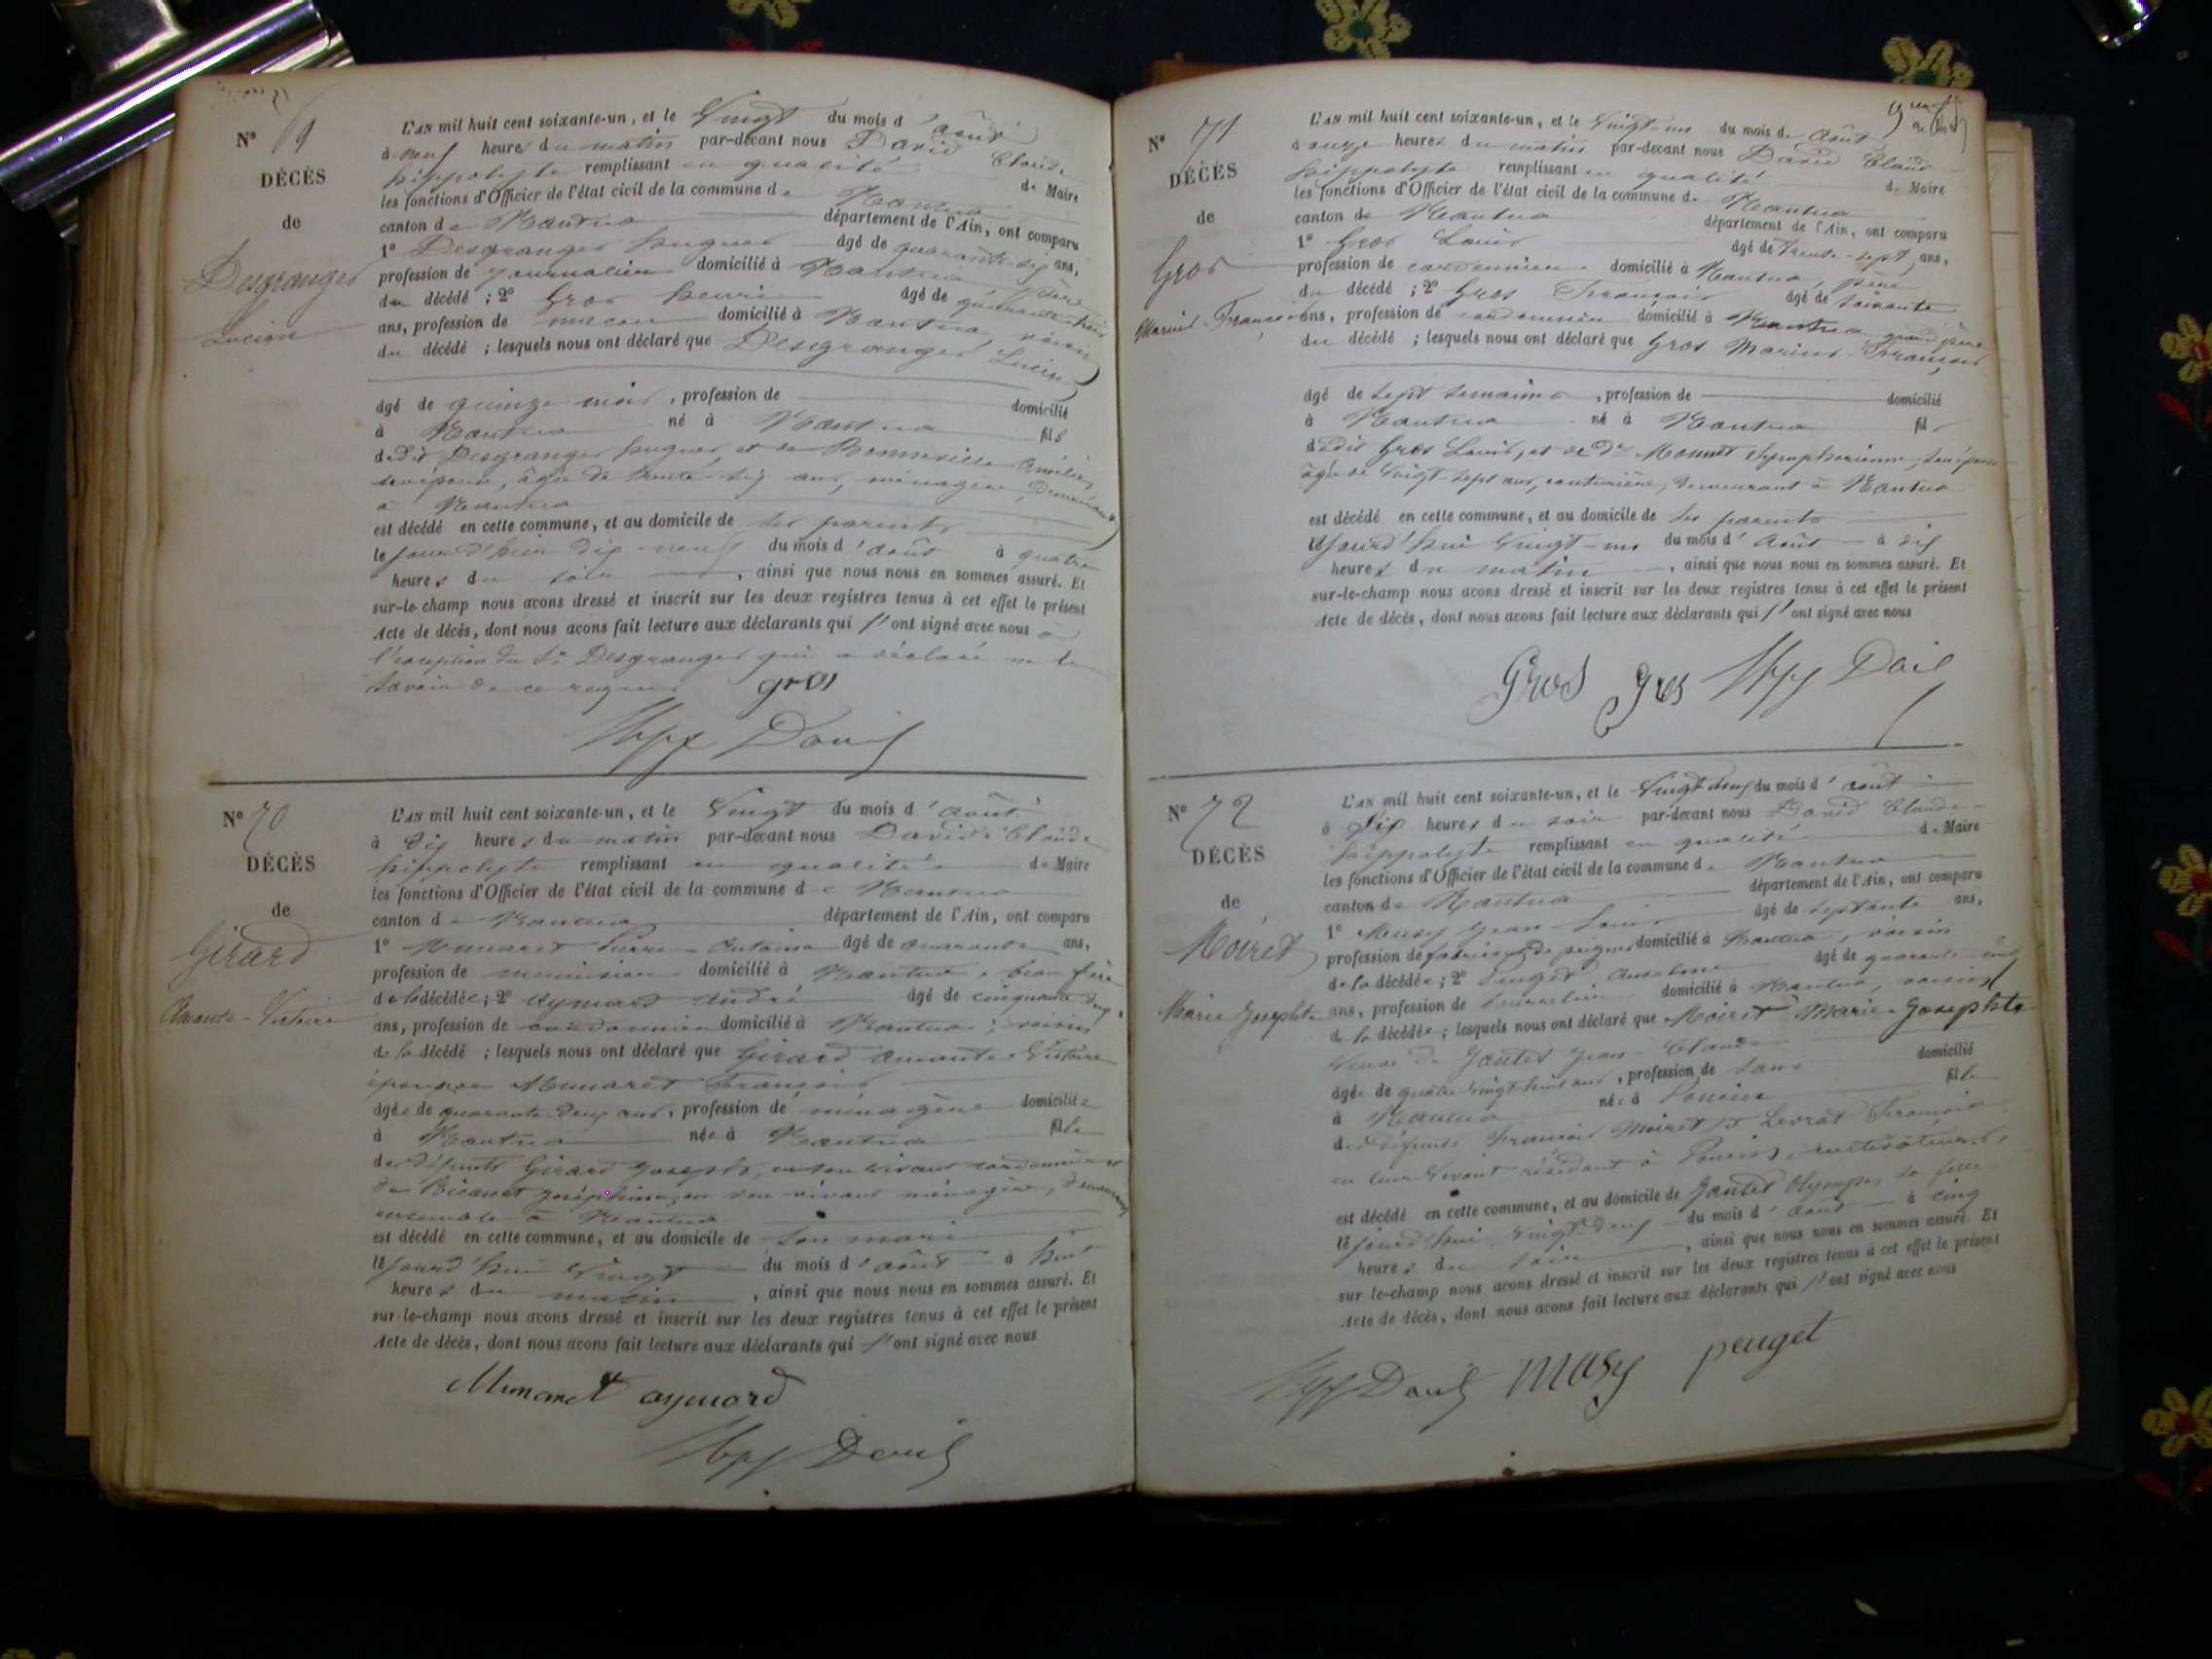 N° 69
DÉCÈS
de
Desgranges
Lucien
L'AN mil huit cent soixante-un, et le Vingt du mois d'août
à neuf heures du matin par-devant nous David Claude
hippolyte remplissant en qualité de Maire
les fonctions d'Officier de l'état civil de la commune de Nantua
canton de Nantua département de l'Ain, ont comparu
1° Desgranges hugues âgé de quarante-six ans,
profession de journalier domicilié à Nantua père
du décédé ; 2° Gros henri âgé de quarante-trois
ans, profession de maçon domicilié à Nantua, voisin
du décédé ; lesquels nous ont déclaré que Desgranges Lucien
âgé de quinze mois, profession de domicilié
à Nantua né à Nantua fils
de dit Desgranges hugues et de Bonneville Amélie,
son épouse, âgée de trente-six ans, ménagère, demeurant
à Nantua
est décédé en cette commune, et au domicile de ses parents
le jour d'hier dix-neuf du mois d'août à quatre
heures du soir, ainsi que nous nous en sommes assuré. Et
sur-le-champ nous avons dressé et inscrit sur les deux registres tenus à cet effet le présent
Acte de décès, dont nous avons fait lecture aux déclarants qui l'ont signé avec nous à
l'exception du Sr Desgranges qui a déclaré ne le
savoir de ce requis gros
hippe David
N° 70
DÉCÈS
de
Girard
Amante-Victoire
L'AN mil huit cent soixante-un, et le Vingt du mois d'août
à dix heures du matin par-devant nous David Claude
hippolyte remplissant en qualité de Maire
les fonctions d'Officier de l'état civil de la commune de Nantua
canton de Nantua département de l'Ain, ont comparu
1° Munaret Pierre-Antoine âgé de quarante ans,
profession de menuisier domicilié à Nantua, beau frère
de la décédée ; 2° Aymard André âgé de cinquante deux
ans, profession de cordonnier domicilié à Nantua, voisin
de la décédé ; lesquels nous ont déclaré que Girard Amante-Victoire
épouse Munaret François
âgée de quarante-deux ans, profession de ménagère domiciliée
à Nantua née à Nantua fille
des défunts Girard Joseph, en son vivant cordonnier et
de Joséphine, en son vivant ménagère, demeurant
ensemble à Nantua
est décédé en cette commune, et au domicile de son mari
le jourd'hui Vingt du mois d'août à huit
heures du matin, ainsi que nous nous en sommes assuré. Et
sur-le-champ nous avons dressé et inscrit sur les deux registres tenus à cet effet le présent
Acte de décès, dont nous avons fait lecture aux déclarants qui l'ont signé avec nous
Munaret aymard
hippe David
N° 71
DÉCÈS
de
Gros
Marius-François
L'AN mil huit cent soixante-un, et le Vingt-un du mois de août
à onze heures du matin par-devant nous David Claude
hippolyte remplissant en qualité de Maire
les fonctions d'Officier de l'état civil de la commune de Nantua
canton de Nantua département de l'Ain, ont comparu
1° Gros Louis âgé de trente-sept ans,
profession de cordonnier domicilié à Nantua, père
du décédé ; 2° Gros François âgé de soixante
ans, profession de cordonnier domicilié à Nantua grand père
du décédé ; lesquels nous ont déclaré que Gros Marius-François
âgé de sept semaines, profession de domicilié
à Nantua né à Nantua fils
de dit Gros Louis, et de de Symphorienne, son épouse
âgée de Vingt-sept ans, couturière, demeurant à Nantua
est décédé en cette commune, et au domicile de ses parents
le jourd'hui Vingt-un du mois d'août à dix
heures du matin, ainsi que nous nous en sommes assuré. Et
sur-le-champ nous avons dressé et inscrit sur les deux registres tenus à cet effet le présent
Acte de décès, dont nous avons fait lecture aux déclarants qui l'ont signé avec nous
Gros gros hippe David
N° 72
DÉCÈS
de
Moiret
Marie Josephte
L'AN mil huit cent soixante-un, et le Vingt deux du mois d'août
à Six heures du soir par-devant nous David Claude
hippolyte remplissant en qualité de Maire
les fonctions d'Officier de l'état civil de la commune de Nantua
canton de Nantua département de l'Ain, ont comparu
1° Musy Jean-Louis âgé de septante ans,
profession de fabricant de peignes domicilié à Nantua, voisin
de la décédée ; 2° Peuget Anselme âgé de quarante-cinq
ans, profession de bourrelier domicilié à Nantua, voisin
de la décédée ; lesquels nous ont déclaré que Moiret Marie-Josephte
Veuve de Jantet Jean-Claude
âgée de quatre vingt huit ans, profession de sans domicilié
à Nantua née à Poncin fille
des défunts François Moiret et Levrat Françoise
en leur vivant résidant à Poncin, cultivateurs
est décédé en cette commune, et au domicile de Jantet Olympe, sa fille
le jourd'hui Vingt deux du mois d'août à cinq
heures du soir, ainsi que nous nous en sommes assuré. Et
sur-le-champ nous avons dressé et inscrit sur les deux registres tenus à cet effet le présent
Acte de décès, dont nous avons fait lecture aux déclarants qui l'ont signé avec nous
hippe David Musy peuget